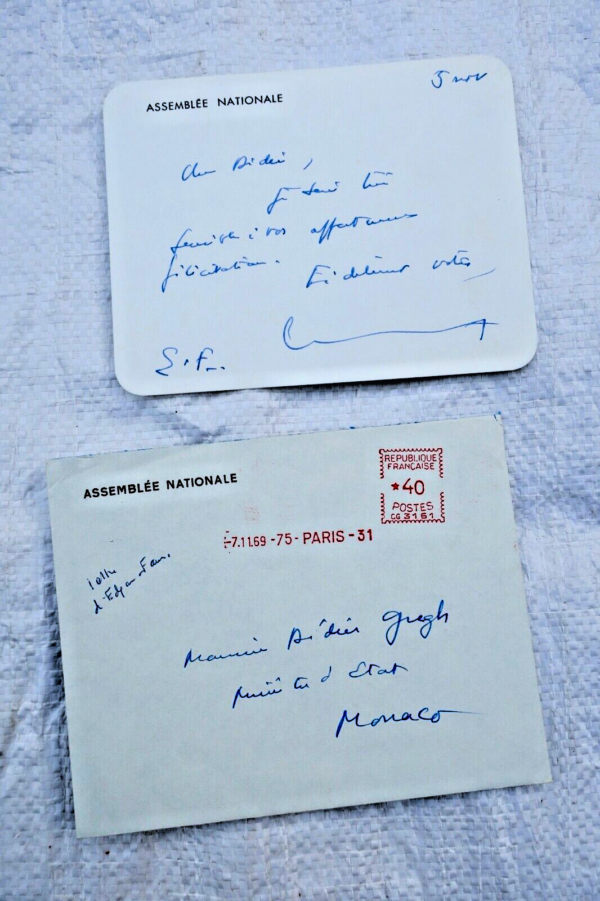 ASSEMBLÉE NATIONALE
5 nov
Cher Didier,
J'ai été très
sensible à vos affectueuses
félicitations.
Fidèlement votre
E.F.
ASSEMBLÉE NATIONALE
REPUBLIQUE
FRANÇAISE
★40
POSTES
CG 3161
-7.11.69 -75- PARIS - 31
d'Edgar Faure
Monsieur Didier Gregh
Ministre d'Etat
Monaco